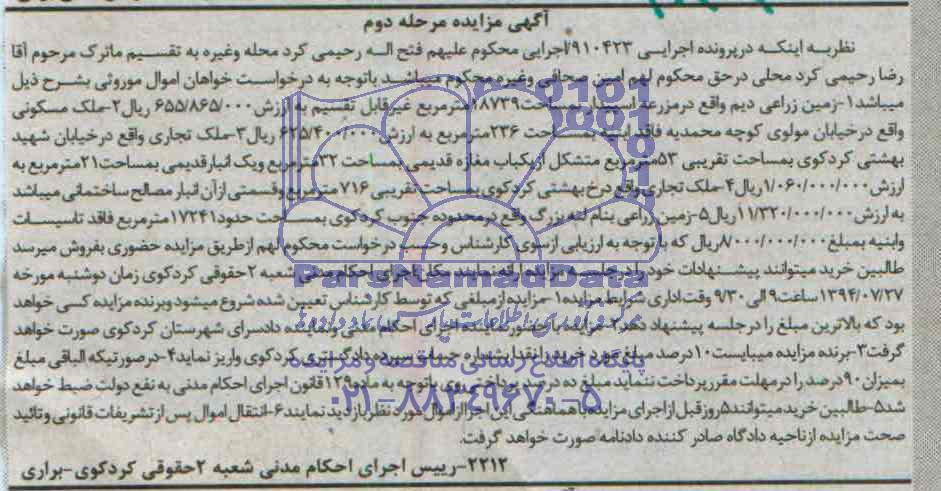 آگهی مزایده مرحله دوم
نظربه اینکه درپرونده اجرایی ۹۱۰۴۲۳/اجرایی محکوم علیهم فتح اله رحیمی کرد محله وغیره به تقسیم ماترک مرحوم آقا
رضا رحیمی کرد محلی درحق محکوم لهم امین صحافی وغیره محکوم میباشد باتوجه به درخواست خواهان اموال موروثی بشرح ذیل
میباشد۱-زمین زراعی دیم واقع درمزرعه اسپندار بمساحت۱۸۷۳۹مترمربع غیرقابل تقسیم به ارزش۶۵۵/۸۶۵/۰۰۰ ریال۲-ملک مسکونی
واقع درخیابان مولوی کوچه محمدیه فاقد ابنیه بمساحت ۲۳۶مترمربع به ارزش ۶۲۵/۴۰۰/۰۰۰ ریال۳-ملک تجاری واقع درخیابان شهید
بهشتی کردکوی بمساحت تقریبی ۵۳مترمربع متشکل ازیکباب مغازه قدیمی بمساحت ۳۲مترمربع ویک انبارقدیمی بمساحت۲۱مترمربع به
ارزش۱/۰۶۰/۰۰۰/۰۰۰ریال۴-ملک تجاری واقع درخ بهشتی کردکوی بمساحت تقریبی ۷۱۶ مترمربع وقسمتی ازآن انبار مصالح ساختمانی میباشد
به ارزش۱۱/۳۲۰/۰۰۰/۰۰۰ریال۵-زمین زراعی بنام لته بزرگ واقع درمحدوده جنوب کردکوی بمساحت حدود۱۷۲۴۱مترمربع فاقد تاسیسات
وابنیه بمبلغ۸/۰۰۰/۰۰۰/۰۰۰ریال که با توجه به ارزیابی ازسوی کارشناس وحسب درخواست محکوم لهم ازطریق مزایده حضوری بفروش میرسد
طالبین خرید میتوانند پیشنهادات خود را درجلسه مزایده ارائه نمایند مکان اجرای احکام مدنی شعبه ۲حقوقی کردکوی زمان دوشنبه مورخه
۱۳۹۴/۰۷/۲۷ ساعت۹ الی ۹/۳۰ وقت اداری شرایط مزایده۱-مزایده ازمبلغی که توسط کارشناس تعیین شده شروع میشود وبرنده مزایده کسی خواهد
بود که بالاترین مبلغ را درجلسه پیشنهاد دهد۲-مزایده با حضور نماینده اجرای احکام مدنی ونماینده دادسرای شهرستان کردکوی صورت خواهد
گرفت۳-برنده مزایده میبایست۱۰درصد مبلغ مورد خرید را نقدا بشماره حساب سپرده دادگستری کردکوی واریز نماید۴-درصورتیکه الباقی مبلغ
بمیزان۹۰درصد را درمهلت مقررپرداخت ننماید مبلغ ده درصد پرداختی وی باتوجه به ماده۱۲۹قانون اجرای احکام مدنی به نفع دولت ضبط خواهد
شد۵-طالبین خرید میتوانند۵روز قبل ازاجرای مزایده باهماهنگی این اجرا ازاموال مورد نظربازدید نمایند۶-انتقال اموال پس ازتشریفات قانونی وتائید
صحت مزایده ازناحیه دادگاه صادر کننده دادنامه صورت خواهد گرفت.
۲۲۱۲-رییس اجرای احکام مدنی شعبه ۲حقوقی کردکوی-براری
ParsNamadData
پایگاه اطلاع رسانی مناقصه و مزایده
۰۲۱-۸۸۳۴۹۶۷۰-۵